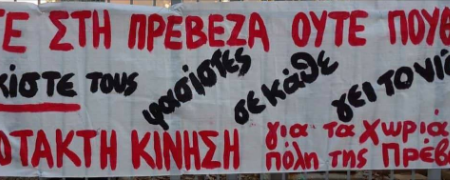 ΤΕ ΣΤΗ ΠΡΕΒΕΖΑ ΟΥΤΕ ΠΟΥΘ
κίστε τους φασίστες σε κάθε γειτονιά
ΟΤΑΚΤΗ ΚΙΝΗΣΗ για τα χωριά
πόλη της Πρέβ